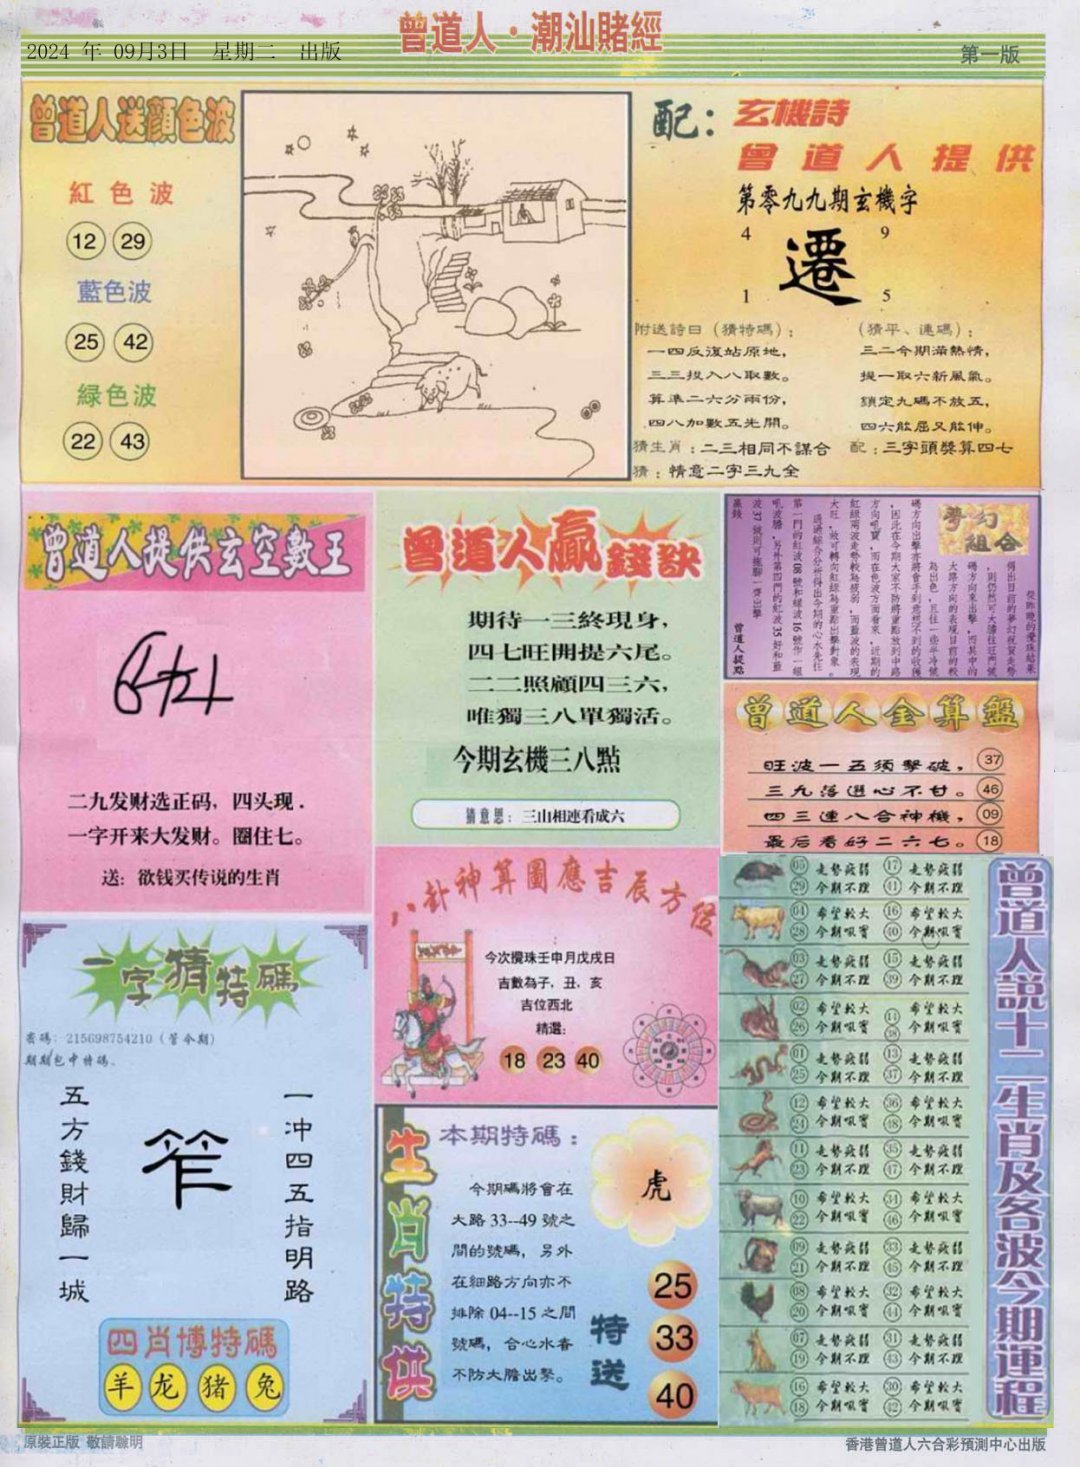 曾道人·潮汕賭經
2024 年 09月3日 星期二 出版
第一版
曾道人送顔色波
紅色波
12 29
藍色波
25 42
綠色波
22 43
配：玄機詩
曾道人提供
第零九九期玄機字
4 9
遷
1 5
附送詩曰（猜特碼）：
一四反復站原地，
三三投入八取數。
算準二六分兩份，
四八加數五先開。
猜生肖：二三相同不謀合
猜：情意二字三九全
（猜平、連碼）：
三二今期滿熱情，
提一取六新風氣。
鎖定九碼不放五，
四六能屈又能伸。
配：三字頭獎算四七
曾道人提供玄空數王
二九发财选正码，四头现．
一字开来大发财。圈住七。
送：欲钱买传说的生肖
曾道人贏錢訣
期待一三終現身，
四七旺開提六尾。
二二照顧四三六，
唯獨三八單獨活。
今期玄機三八點
猜意思：三山相連看成六
夢幻
組合
從昨晚的攪珠結果
曾道人提點
曾道人金算盤
旺波一五須擊破， 37
三九落選心不甘。 46
四三連八合神機， 09
最后看好二六七。 18
一字猜特碼
密碼：215698754210（管今期）
期期包中特碼．
一冲四五指明路
笮
五方錢財歸一城
四肖博特碼
羊 龙 猪 兔
八卦神算圖應吉辰方位
今次攪珠壬申月戊戌日
吉數為子，丑，亥
吉位西北
精選：
18 23 40
生肖特供
本期特碼：
今期碼將會在
大路 33--49 號之
間的號碼，另外
在細路方向亦不
排除 04--15 之間
號碼，合心水春
不防大膽出擊。
虎
特送
25
33
40
曾道人説十二生肖及各波今期運程
05 走勢疲弱 17 走勢疲弱
29 今期不理 41 今期不理
04 希望較大 16 希望較大
28 今期吼實 40 今期吼實
03 走勢疲弱 15 走勢疲弱
27 今期不理 39 今期不理
02 希望較大 14 希望較大
26 今期吼實 38 今期吼實
01 走勢疲弱 13 走勢疲弱
25 今期不理 37 今期不理
12 希望較大 36 希望較大
24 今期吼實 48 今期吼實
11 走勢疲弱 35 走勢疲弱
23 今期不理 47 今期不理
10 希望較大 34 希望較大
22 今期吼實 46 今期吼實
09 走勢疲弱 33 走勢疲弱
21 今期不理 45 今期不理
08 希望較大 32 希望較大
20 今期吼實 44 今期吼實
07 走勢疲弱 31 走勢疲弱
19 今期不理 43 今期不理
16 希望較大 30 希望較大
18 今期吼實 42 今期吼實
原裝正版 敬請聯明
香港曾道人六合彩預測中心出版